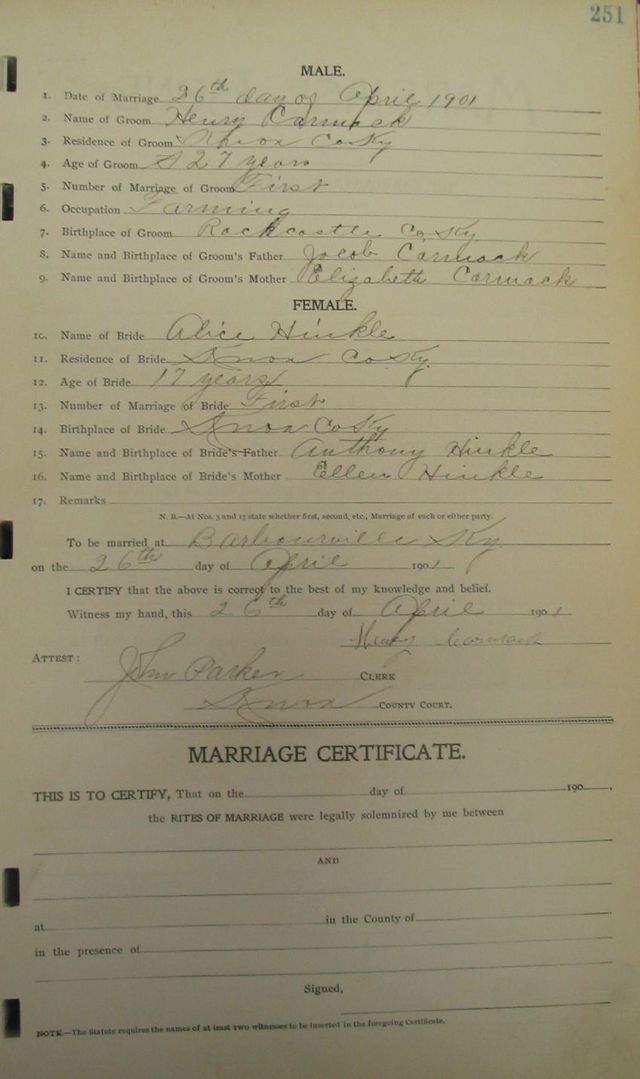 251
MALE.
1. Date of Marriage 26th day of April 1901
2. Name of Groom Henry Carmack
3. Residence of Groom Knox Co Ky
4. Age of Groom 27 years
5. Number of Marriage of Groom First
6. Occupation Farming
7. Birthplace of Groom Rockcastle Co Ky
8. Name and Birthplace of Groom's Father Jacob Carmack
9. Name and Birthplace of Groom's Mother Elizabeth Carmack
FEMALE.
10. Name of Bride Alice Hinkle
11. Residence of Bride Knox Co Ky.
12. Age of Bride 17 years
13. Number of Marriage of Bride First
14. Birthplace of Bride Knox Co Ky
15. Name and Birthplace of Bride's Father Anthony Hinkle
16. Name and Birthplace of Bride's Mother Ellen Hinkle
17. Remarks
N. B.—At Nos. 5 and 13 state whether first, second, etc., Marriage of each or either party.
To be married at Barbourville Ky.
on the 26th day of April 1901
I CERTIFY that the above is correct to the best of my knowledge and belief.
Witness my hand, this 26th day of April 1901
Henry Carmack
ATTEST: John Parker CLERK
Knox COUNTY COURT.
MARRIAGE CERTIFICATE.
THIS IS TO CERTIFY, That on the day of 190 ,
the RITES OF MARRIAGE were legally solemnized by me between
AND
at in the County of
in the presence of
Signed,
NOTE.—The Statute requires the names of at least two witnesses to be inserted in the foregoing Certificate.